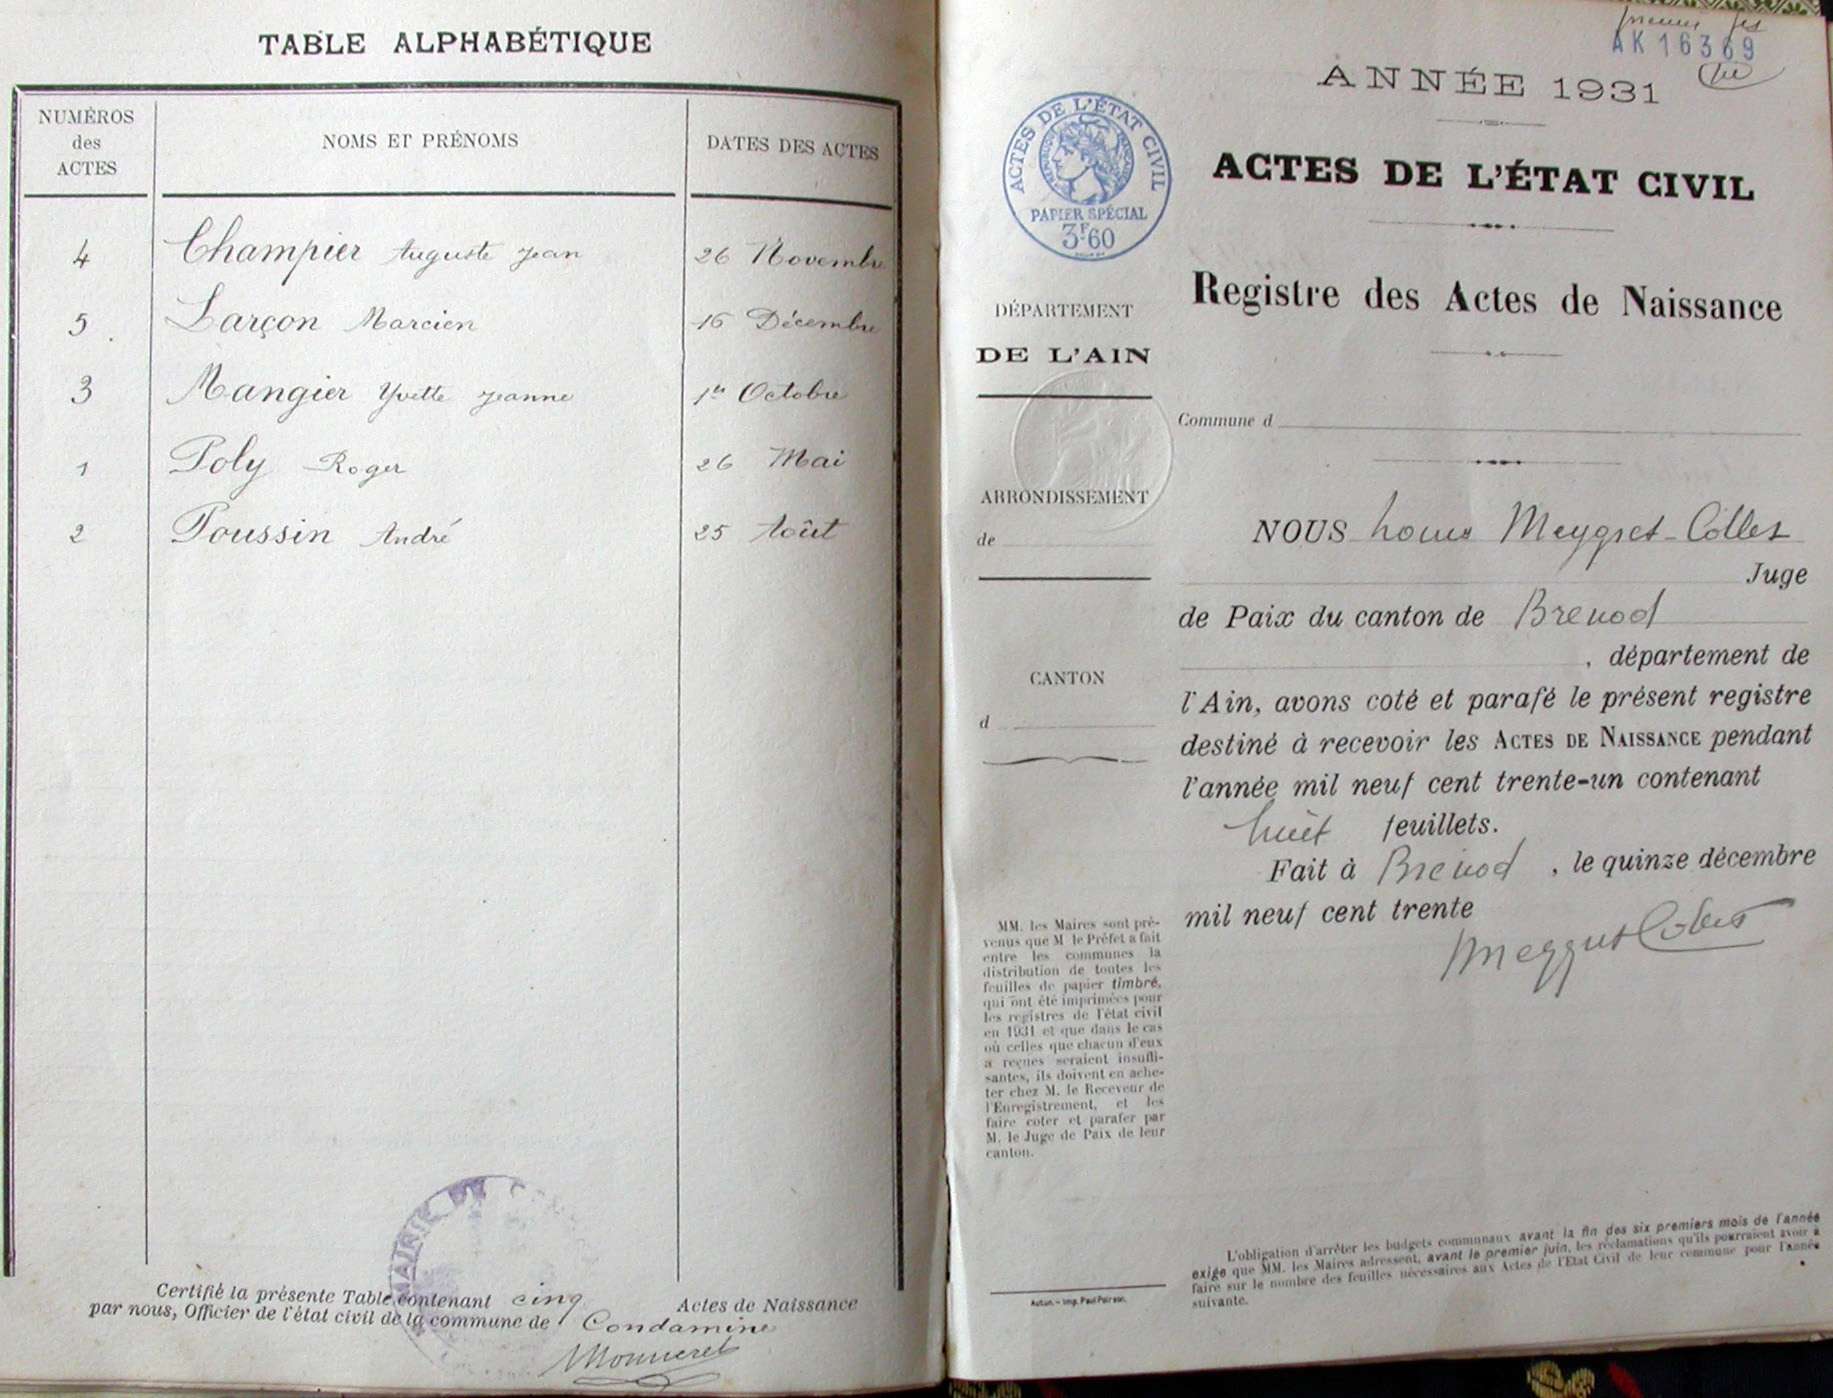 TABLE ALPHABÉTIQUE
NUMÉROS des ACTES
NOMS ET PRÉNOMS
DATES DES ACTES
4 Champier Auguste Jean 26 Novembre
5 Larçon Marcien 16 Décembre
3 Mangier Yvette Jeanne 1er Octobre
1 Poly Roger 26 Mai
2 Poussin André 25 Août
MAIRIE DE
Certifié la présente Table contenant cinq Actes de Naissance
par nous, Officier de l'état civil de la commune de Condamine
Monneret
AK 16369
ANNÉE 1931
ACTES DE L'ÉTAT CIVIL
RÉPUBLIQUE FRANÇAISE
PAPIER SPÉCIAL
3F60
ACTES DE L'ÉTAT CIVIL
Registre des Actes de Naissance
DÉPARTEMENT
DE L'AIN
Commune d
ARRONDISSEMENT
de
CANTON
d
NOUS Meygret-Collet
Juge
de Paix du canton de Brenod
, département de
l'Ain, avons coté et parafé le présent registre
destiné à recevoir les ACTES DE NAISSANCE pendant
l'année mil neuf cent trente-un contenant
huit feuillets.
Fait à Brénod, le quinze décembre
mil neuf cent trente
MM. les Maires sont pré-
venus que M. le Préfet a fait
entre les communes la
distribution de toutes les
feuilles de papier timbré,
qui ont été imprimées pour
les registres de l'état civil
en 1931 et que dans le cas
où celles que chacun d'eux
a reçues seraient insuffi-
santes, ils doivent en ache-
ter chez M. le Receveur de
l'Enregistrement, et les
faire coter et parafer par
M. le Juge de Paix de leur
canton.
Autun. – Imp. Paul Poirson.
L'obligation d'arrêter les budgets communaux avant la fin des six premiers mois de l'année
exige que MM. les Maires adressent, avant le premier juin, les réclamations qu'ils pourraient avoir à
faire sur le nombre des feuilles nécessaires aux Actes de l'Etat Civil de leur commune pour l'année
suivante.